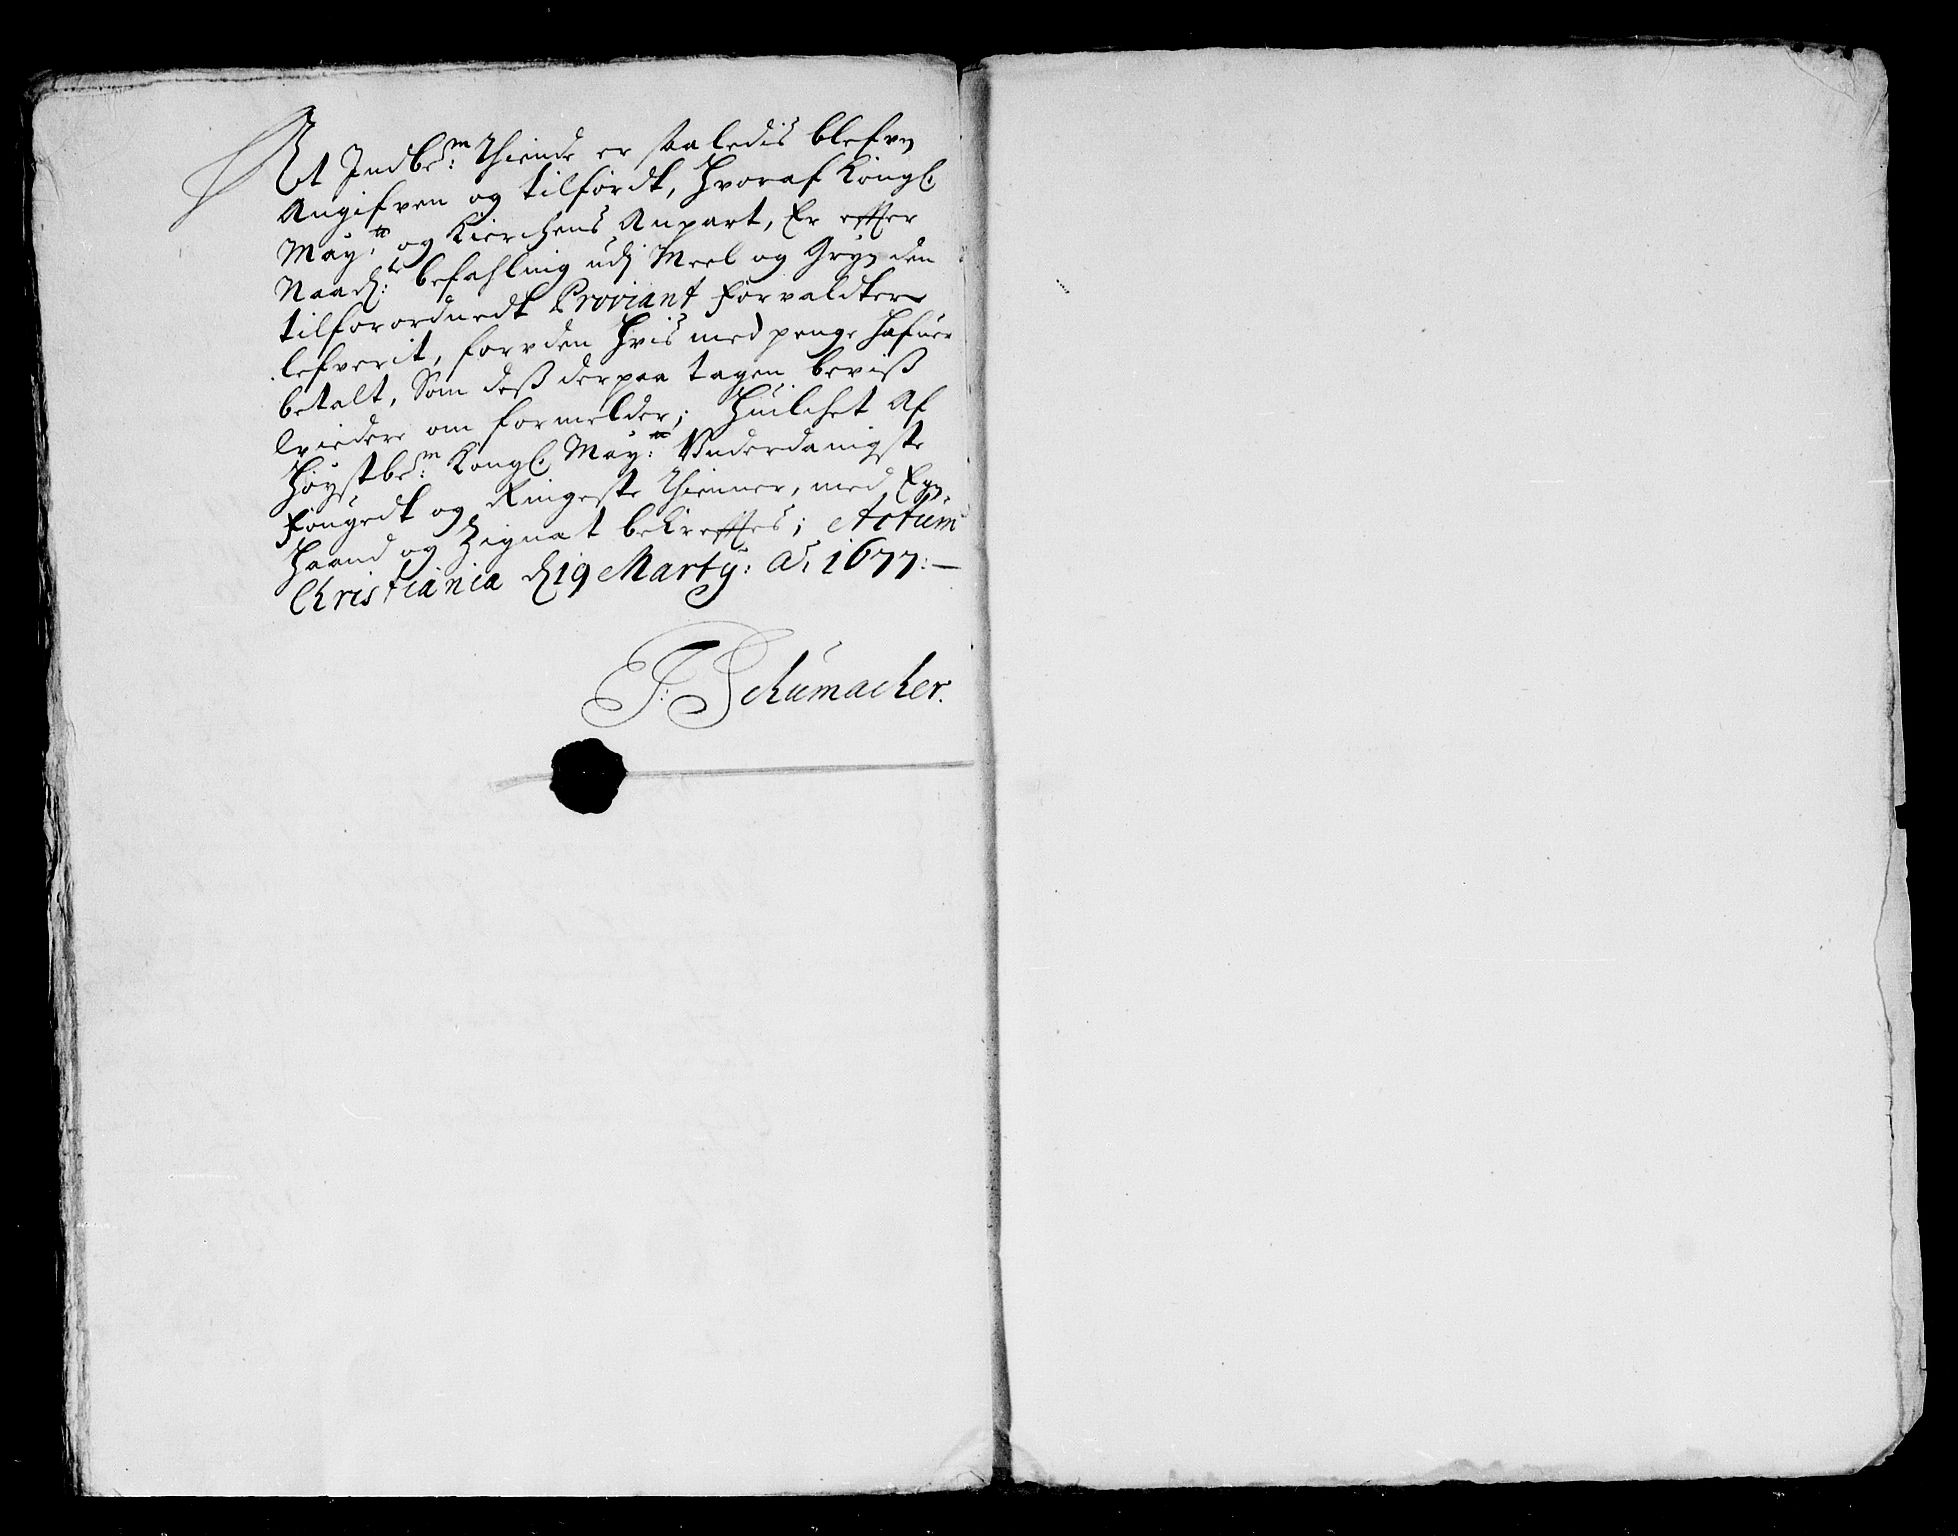 At Indbe:m Thiende er saaledis blefven
Angifven og tilførdt, Hvoraf Kongl.
May:ts og Kierchens Anpart, Er effter
Naad: befahling udj Meel og Gryn den
tilforordnedt Proviant forvaldter
lefverit, forvden Hvis med penge hafuer
betalt, Som deß derpaa tagen beviß
lviedere om formelder; Huilchet Af
Høystbe:m Kongl. May:ts Vnderdanigste
fougedt og Ringeste Thienner, med Egen
Haand og Zignat bekrefftes; Actum
Christiania d 19 Martÿ: Ao: 1677:—
F: Schumacher.